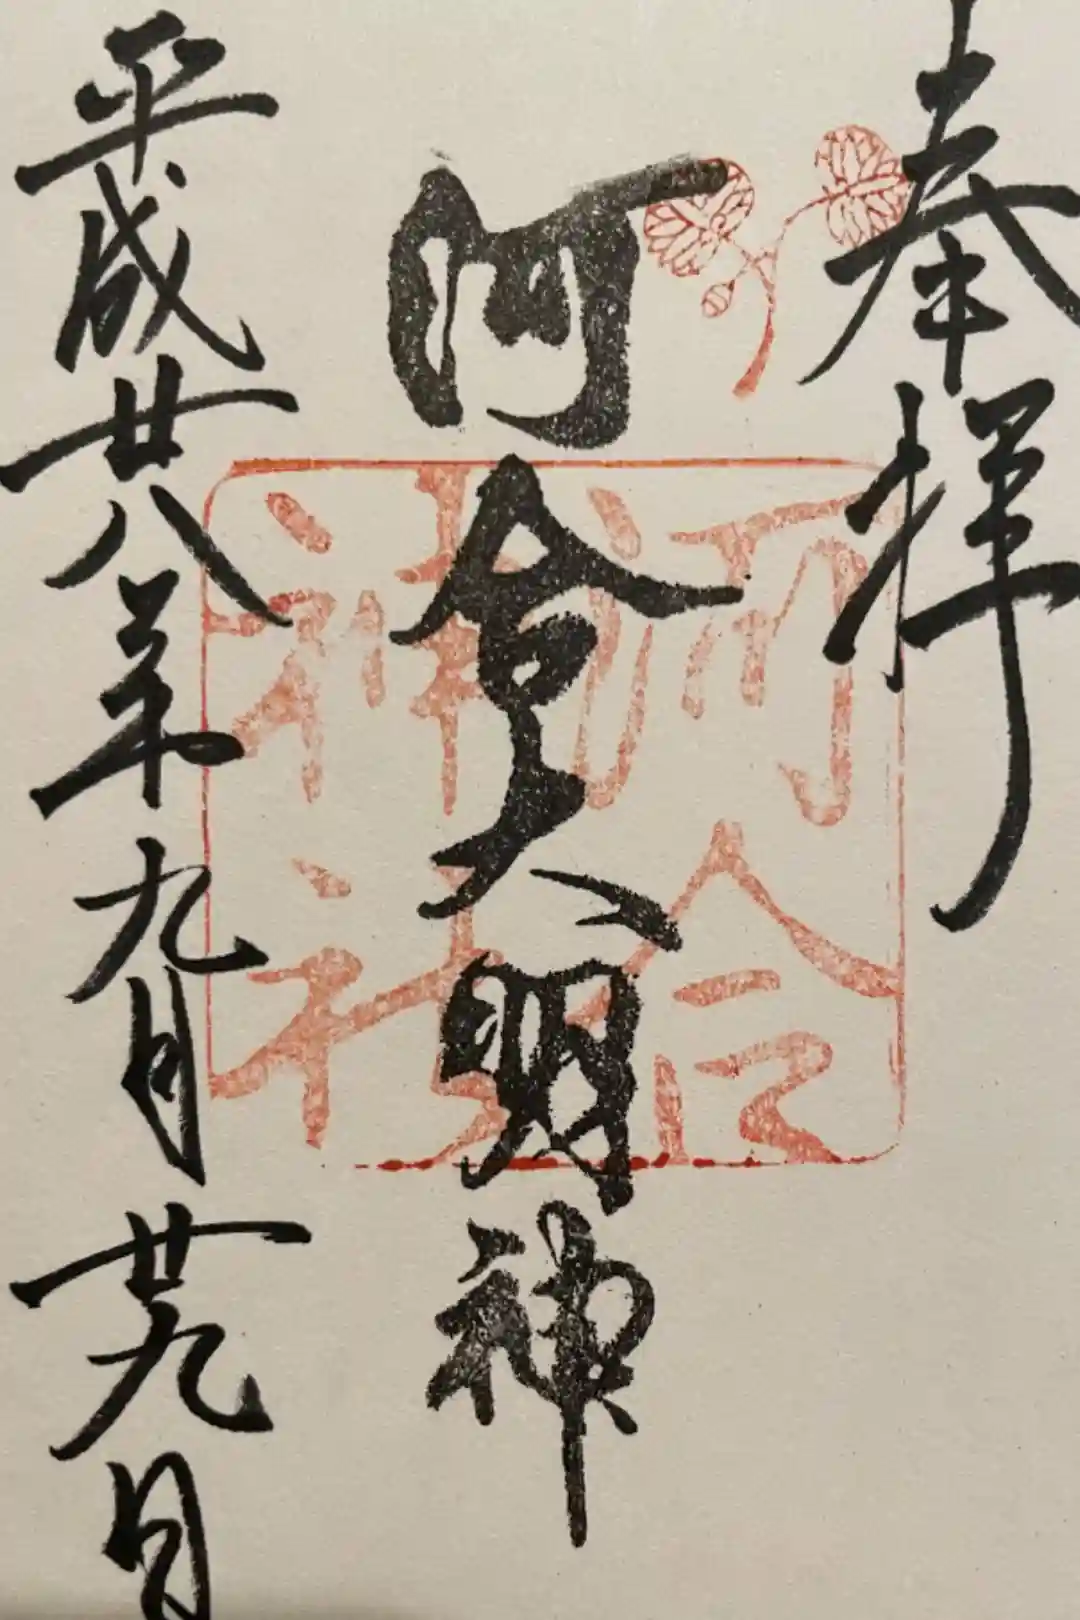 奉拝
河合大明神
河合
神社
平成廿八年九月廿九日